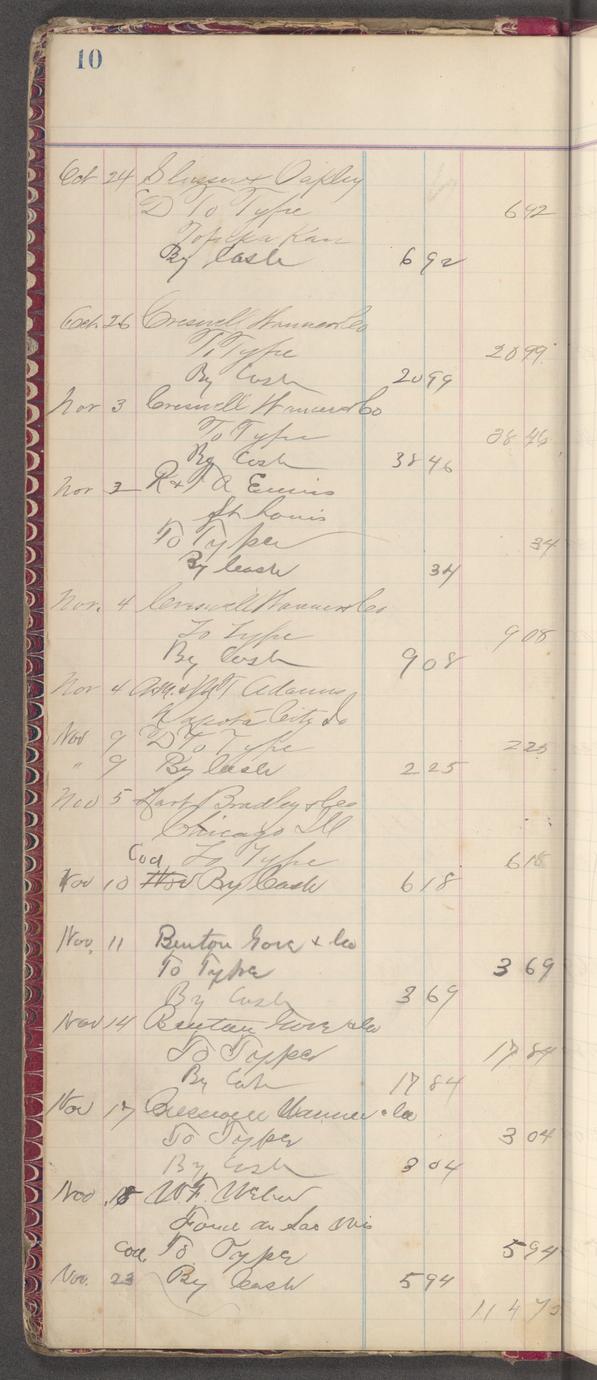 10
Oct 24 & Oakley
D To Type 692
Topeka Kan
By Cash 692
Oct. 26 Creswell Wanner & Co
To Type 2099
By Cash 2099
Nov 3 Creswell Wanner & Co
To Type 3846
By Cash 3846
Nov 3 R & T A Ennis
St Louis
To Type 34
By Cash 34
Nov. 4 Creswell Wanner & Co
To Type 908
By Cash 908
Nov 4 Adams
Dakota City
Nov 9 D To Type 225
" 9 By Cash 225
Nov 5 Hart Bradley & Co
Chicago Ill
Cod To Type 618
Nov 10 Nov By Cash 618
Nov. 11 Benton Gove & Co
To Type 369
By Cash 369
Nov 14 Benton Gove & Co
To Type 1784
By Cash 1784
Nov 17 Creswell Wanner & Co
To Type 304
By Cash 304
Nov. 18 W.F. Weber
Fond du Lac Wis
Cod. To Type 594
Nov. 23 By Cash 594